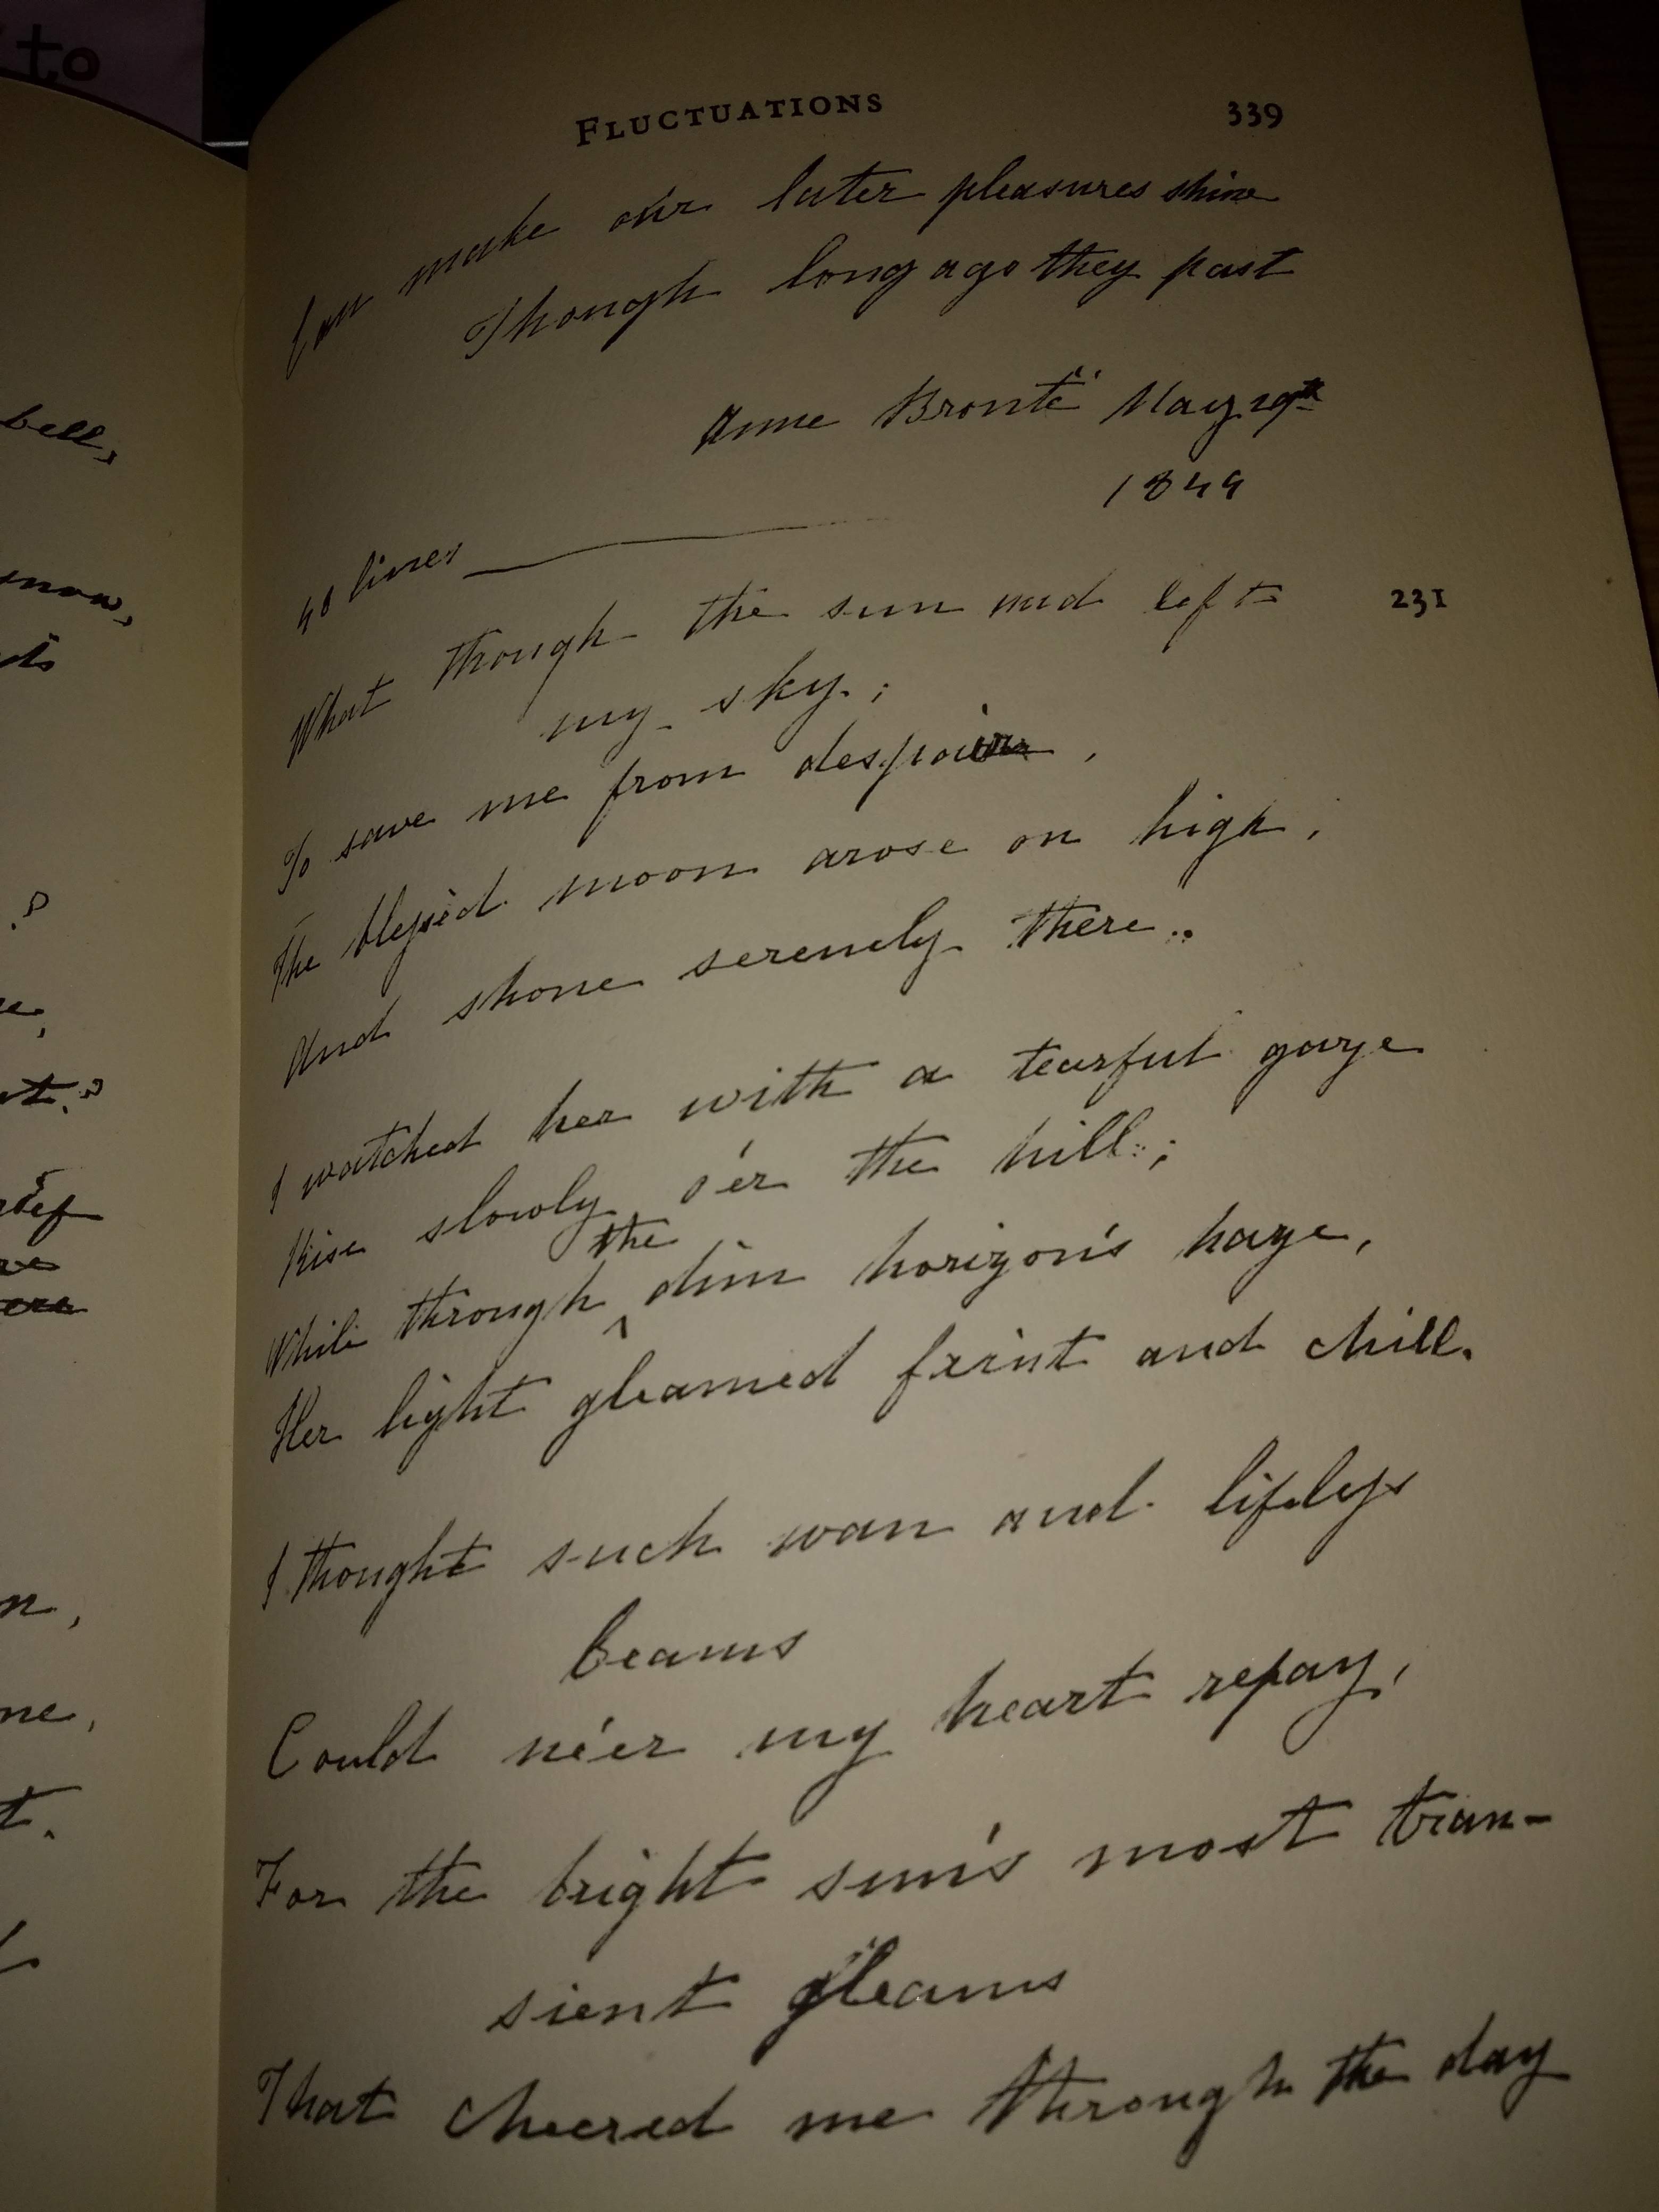 to
FLUCTUATIONS 339
Can make our later pleasures shine
Though long ago they past
Anne Brontë May
1849
48 lines
What though the sun had left 231
my sky;
To save me from despair,
The blessèd moon arose on high,
And shone serenely there..
I watched her with a tearful gaze
Rise slowly o'er the hill;
the
While through ^ dim horizon's haze,
Her light gleamed faint and chill.
I thought such wan and lifeless
beams
Could ne'er my heart repay,
For the bright sun's most tran-
sient gleams
That cheered me through the day
bell,